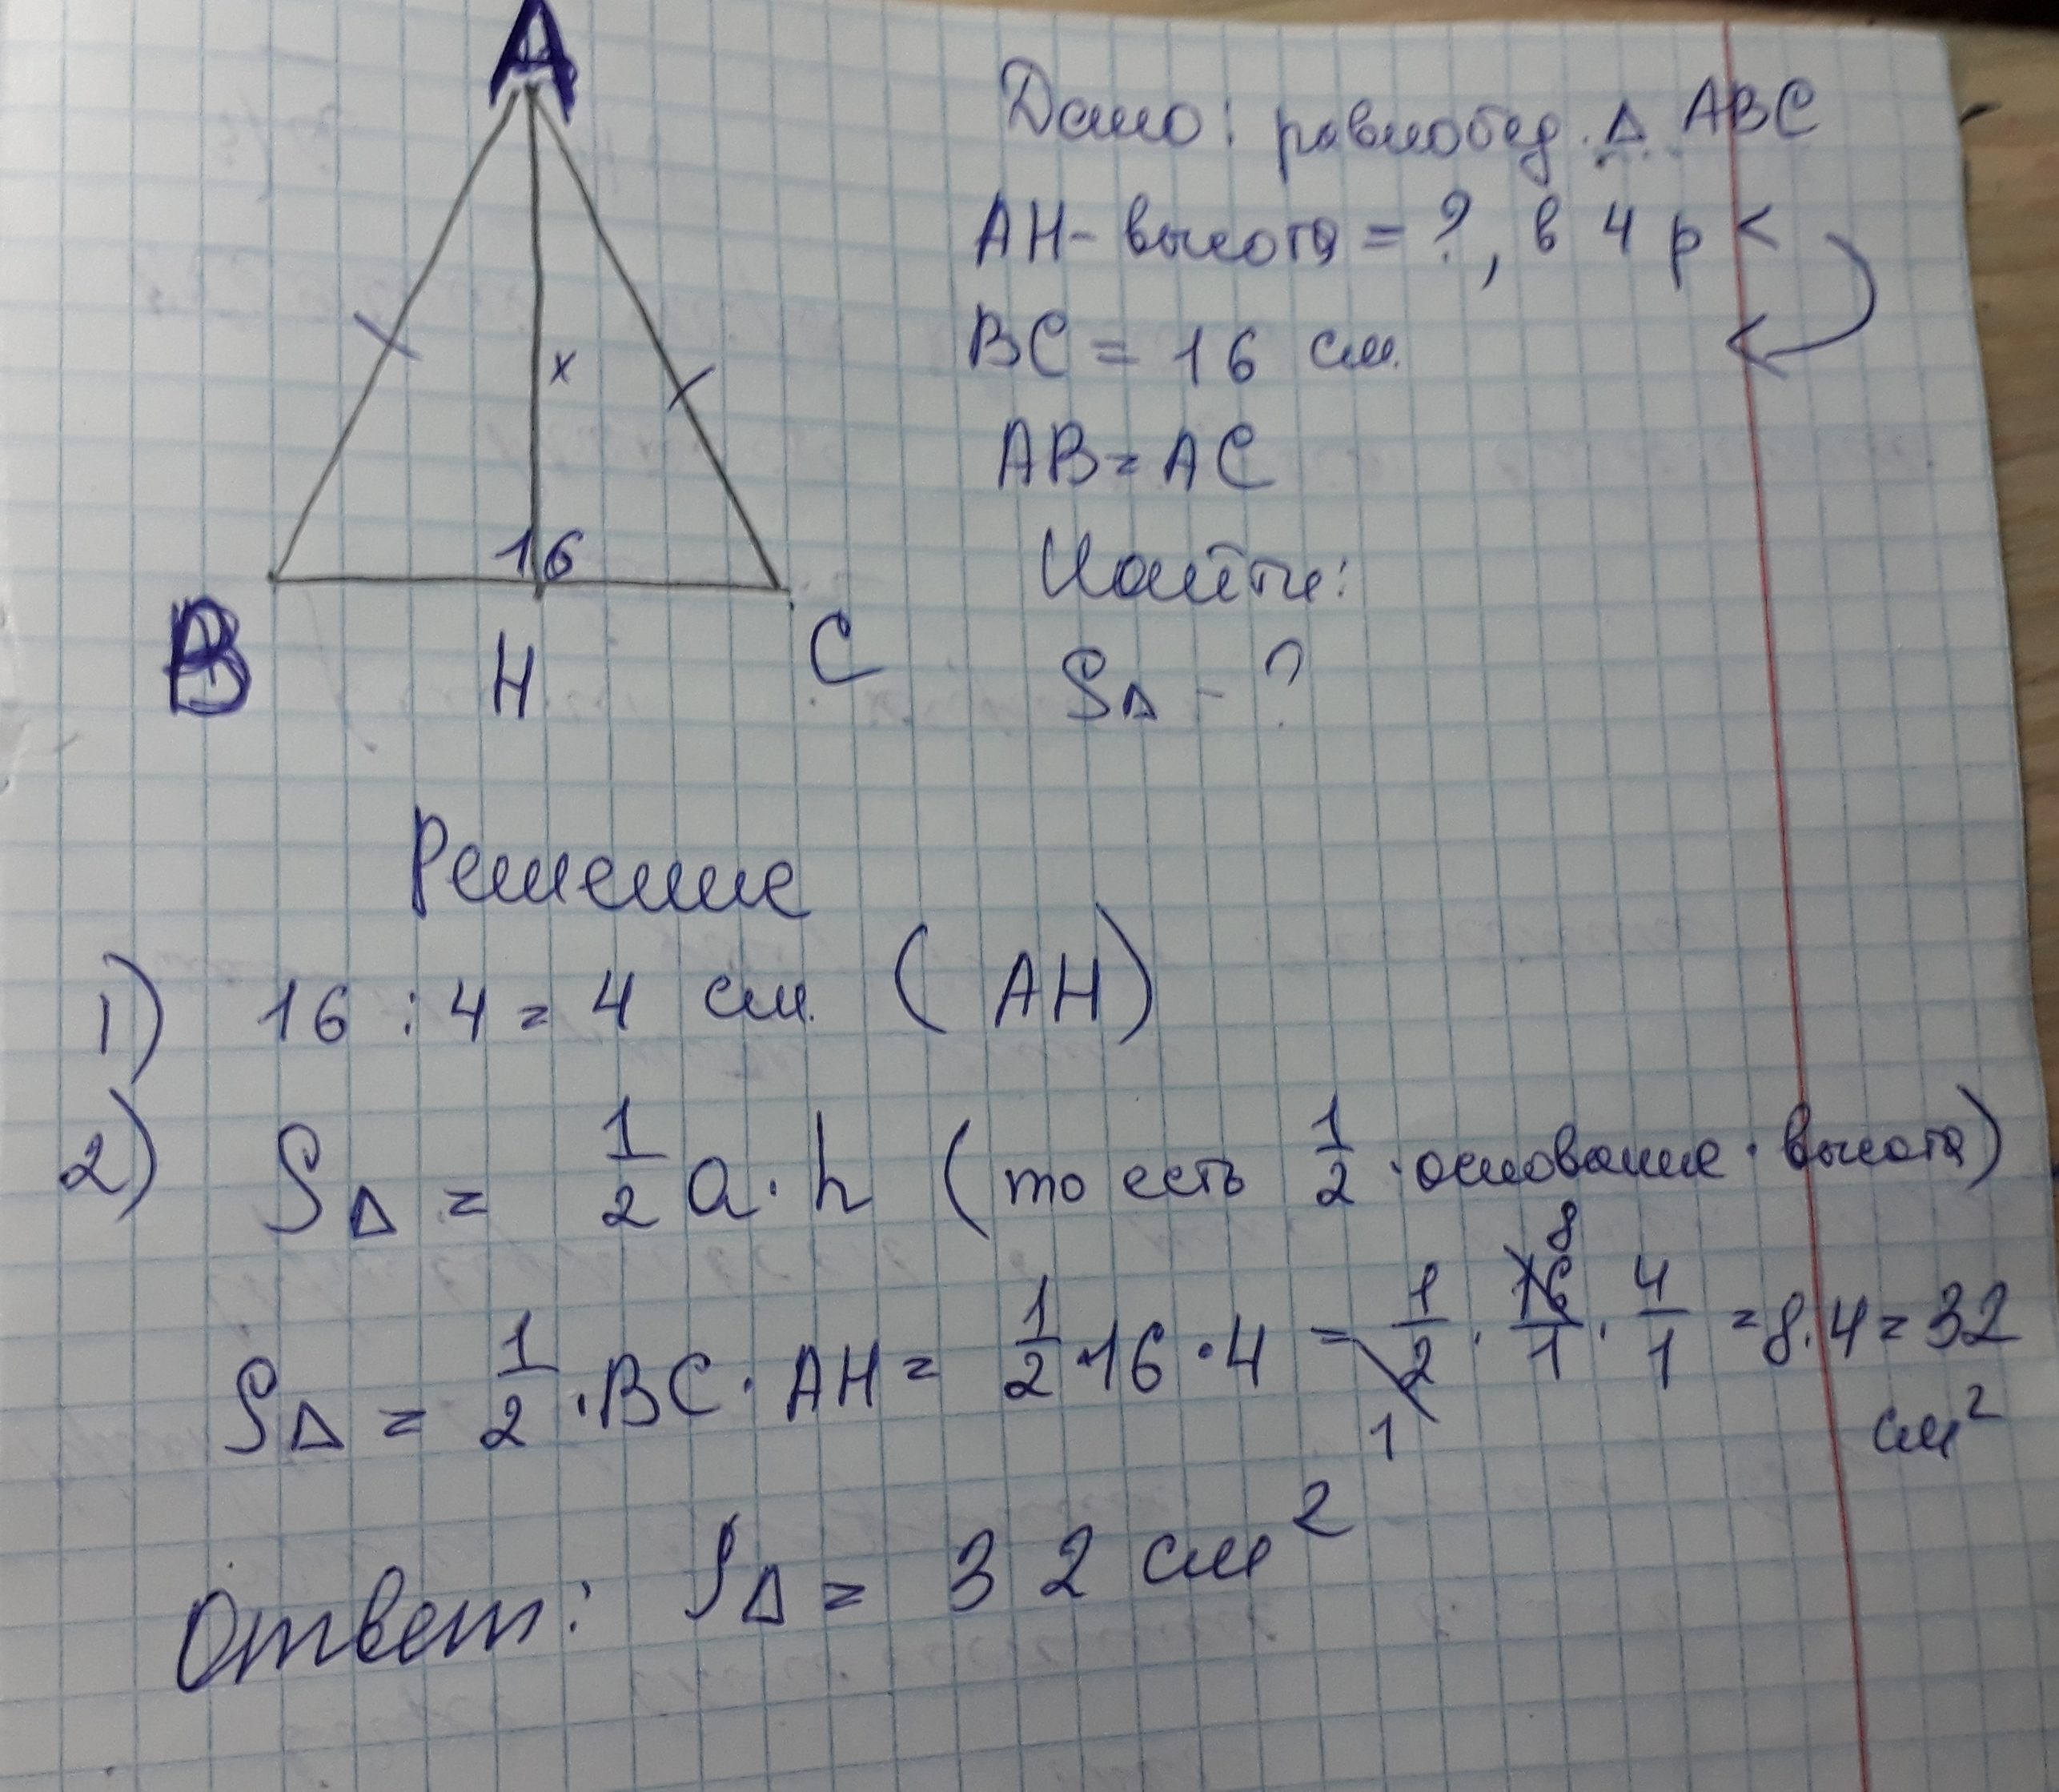 A
Дано: равнобед. Δ ABC
AH - высота = ?, в 4 р <
BC = 16 см.
x
AB = AC
16
Найти:
B H C
SΔ - ?
Решение
1) 16 : 4 = 4 см. (AH)
2) SΔ = 1/2 a · h (то есть 1/2 · основание · высота)
SΔ = 1/2 · BC · AH = 1/2 · 16 · 4 = 1/2 · 16/1 · 4/1 = 8 · 4 = 32
8
1
см²
Ответ: SΔ = 32 см²